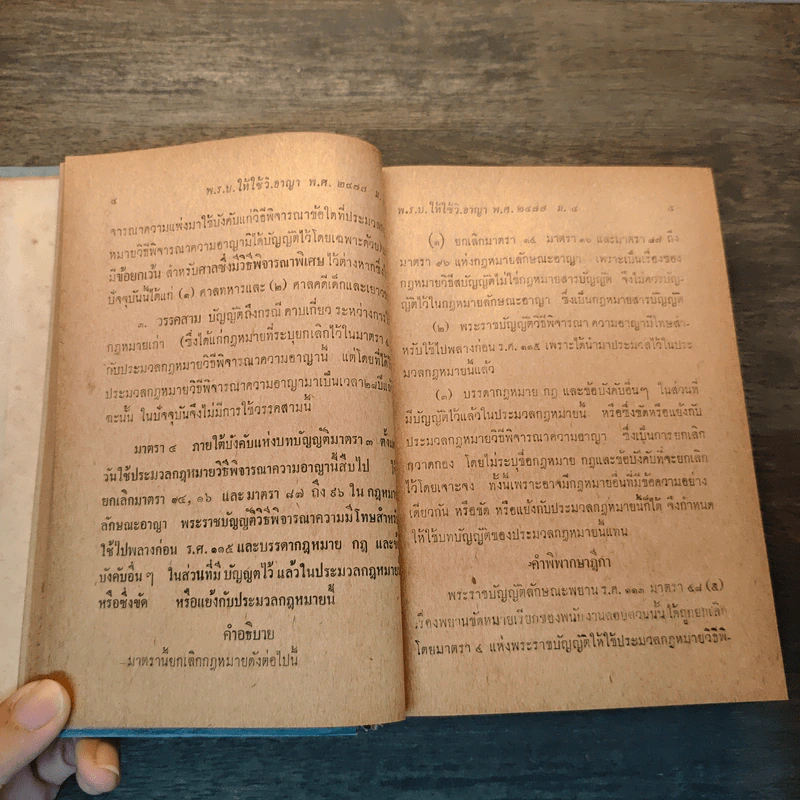 ๔ พ.ร.บ. ให้ใช้วิ.อาญา พ.ศ. ๒๔๗๗ ม.
จารณาความแพ่งมาใช้บังคับแก่วิธีพิจารณาข้อใดที่ประมวล
หมายวิธีพิจารณาความอาญามิได้บัญญัติไว้โดยเฉพาะด้วย
มีข้อยกเว้น สำหรับศาลซึ่งมีวิธีพิจารณาพิเศษ ไว้ต่างหากซึ่ง
ปัจจุบันนี้ได้แก่ (๑) ศาลทหารและ (๒) ศาลคดีเด็กและเยาว
๓. วรรคสาม บัญญัติถึงกรณี คาบเกี่ยว ระหว่างการใช้
กฎหมายเก่า (ซึ่งได้แก่กฎหมายที่ระบุยกเลิกไว้ในมาตรา ๔
กับประมวลกฎหมายวิธีพิจารณาความอาญานี้ แต่โดยที่ได้ใช้
ประมวลกฎหมายวิธีพิจารณาความอาญามาเป็นเวลา ๒๘ ปีแล้ว
ฉะนั้น ในปัจจุบันจึงไม่มีการใช้วรรคสามนี้
มาตรา ๔ ภายใต้บังคับแห่งบทบัญญัติมาตรา ๓ ตั้งแต่
วันใช้ประมวลกฎหมายวิธีพิจารณาความอาญานี้สืบไป ให้
ยกเลิกมาตรา ๑๕, ๑๖ และมาตรา ๘๗ ถึง ๙๖ ใน กฎหมาย
ลักษณะอาญา พระราชบัญญัติวิธีพิจารณาความมีโทษสำหรับ
ใช้ไปพลางก่อน ร.ศ. ๑๑๕ และบรรดากฎหมาย กฎ และข้อ
บังคับอื่น ๆ ในส่วนที่มี บัญญัติไว้ แล้วในประมวลกฎหมาย
หรือซึ่งขัด หรือแย้งกับประมวลกฎหมายนี้
คำอธิบาย
มาตรานี้ยกเลิกกฎหมายดังต่อไปนี้
พ.ร.บ. ให้ใช้วิ.อาญา พ.ศ. ๒๔๗๗ ม. ๔ ๕
(๑) ยกเลิกมาตรา ๑๕ มาตรา ๑๖ และมาตรา ๘๗ ถึง
มาตรา ๙๖ แห่งกฎหมายลักษณะอาญา เพราะเป็นเรื่องของ
กฎหมายวิธีสบัญญัติไม่ใช่กฎหมายสารบัญญัติ จึงไม่ควรบัญ-
ญัติไว้ในกฎหมายลักษณะอาญา ซึ่งเป็นกฎหมายสารบัญญัติ
(๒) พระราชบัญญัติวิธีพิจารณา ความอาญามีโทษสำ-
หรับใช้ไปพลางก่อน ร.ศ. ๑๑๕ เพราะได้นำมาประมวลไว้ในประ
มวลกฎหมายนี้แล้ว
(๓) บรรดากฎหมาย กฎ และข้อบังคับอื่นๆ ในส่วนที่
มีบัญญัติไว้แล้วในประมวลกฎหมายนี้ หรือซึ่งขัดหรือแย้งกับ
ประมวลกฎหมายวิธีพิจารณาความอาญา ซึ่งเป็นการยกเลิก
กวาดกอง โดยไม่ระบุชื่อกฎหมาย กฎและข้อบังคับที่จะยกเลิก
ไว้โดยเจาะจง ทั้งนี้เพราะอาจมีกฎหมายอื่นที่มีข้อความอย่าง
เดียวกัน หรือขัด หรือแย้งกับประมวลกฎหมายนี้ก็ได้ จึงกำหนด
ให้ใช้บทบัญญัติของประมวลกฎหมายนี้แทน
คำพิพากษาฎีกา
พระราชบัญญัติลักษณะพยาน ร.ศ. ๑๑๓ มาตรา ๔๘ (๕)
เรื่องพยานขัดหมายเรียกของพนักงานสอบสวนนั้น ได้ถูกยกเลิก
โดยมาตรา ๔ แห่งพระราชบัญญัติให้ใช้ประมวลกฎหมายวิธีพิ-